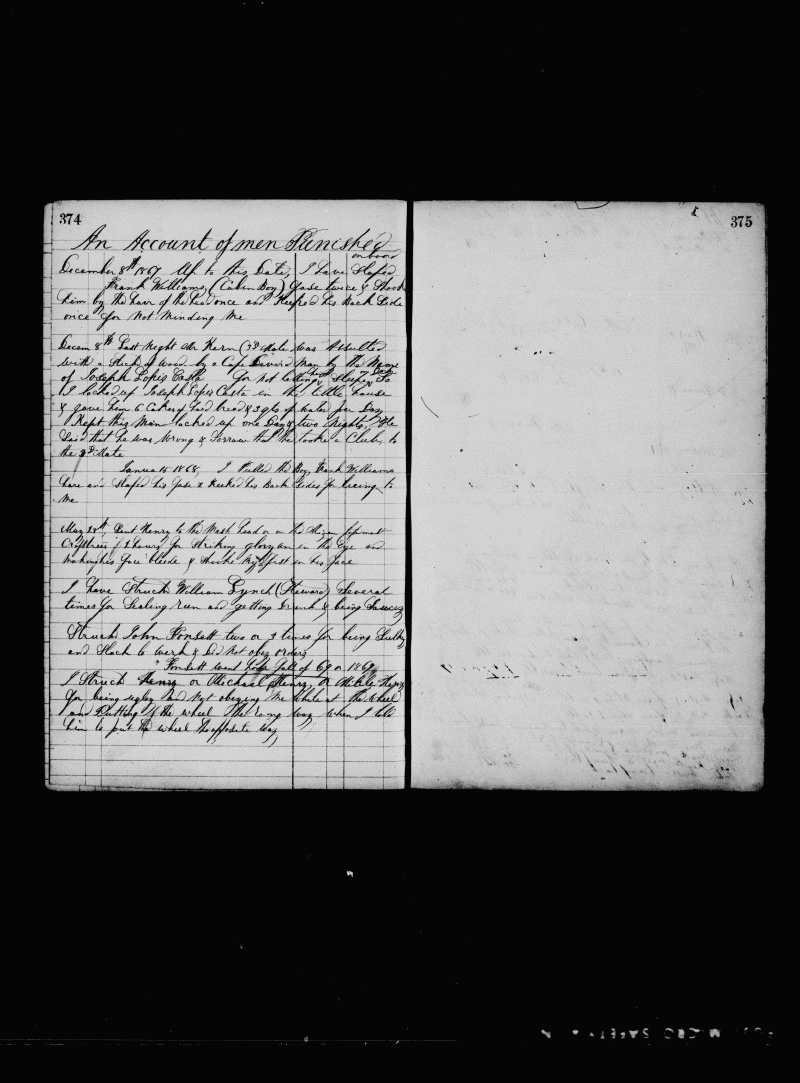 374
375
An Account of men Punished
on board
December 8th 1867 Up to this Date, I have Slaped
Frank Williams, (Cabin Boy) fase twice & Shook
him by the hair of the head once and Keeked his Back Side
once for Not Minding Me
Decem 8th Last Night Mr Kern (3d Mate) was Asulted
with a Stick of wood by a Cape Deverd Man by the Name
of Joseph Lopes Casta for Not letting Sleep So
I locked up Joseph Lopes Casta in the little house
& gave him 6 Cakes of hard bread & 3 qts of water per Day
I Kept this Man locked up one Day & two Nights, He
Said that he was Wrong & Sorrow that he tooke a Club to
the 3d Mate
Janua 15 1868, I Pulled the Boy, Frank Williams
hare and Slaped his fase & Keeked his Back Sides for lieing to
Me
May 28th, Sent Henry to the Mast head or on the Mizen topmast
Crosstrees for 2 hours for Striking gloryan in the Eye and
Making his face bleede & Shooke My fist in his face
I have Struck William Lynch (Steward) Several
times for Stealing rum and getting Drunk & being Saucey
Struck John Fonsett two or 3 times for being Sulky
and Slack to Work & Did Not obey orders
Fonsett went fall of 69 or 1869
I Struck Henry or Michael Henry, or Henry
for being ugley and Not obeying Me While at the Wheel
and Putting the wheel the rong way when I told
him to put the wheel the opposite way